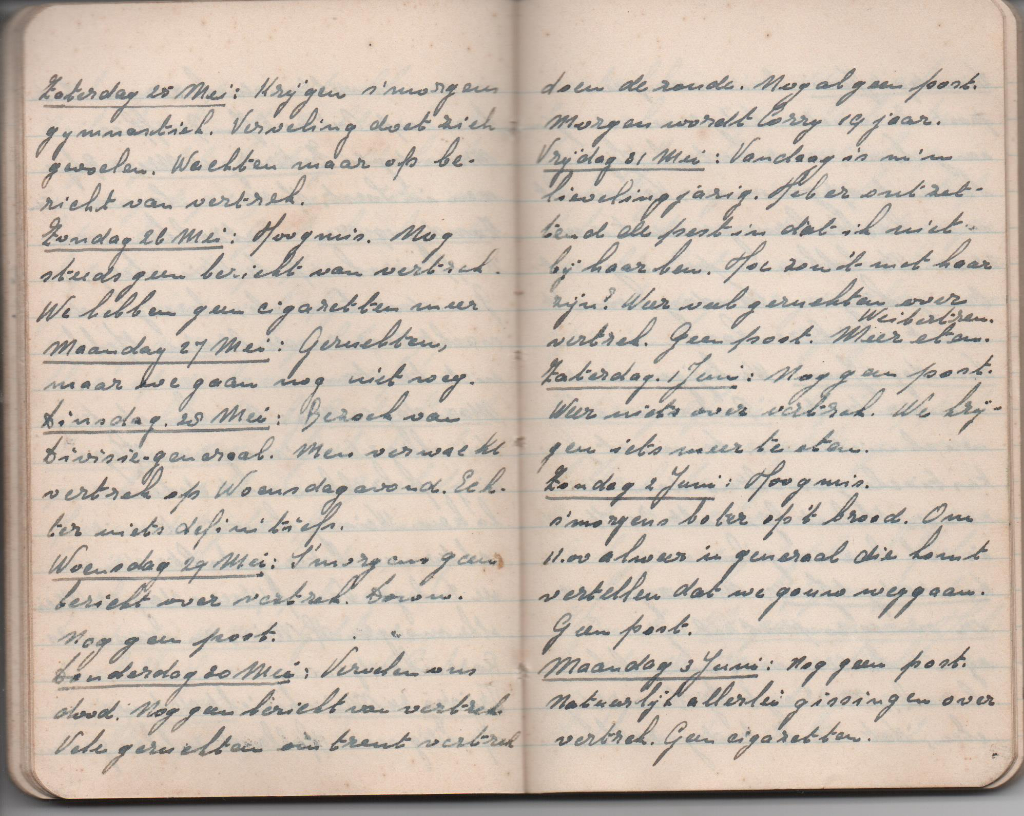 Zaterdag 25 Mei: Krijgen s'morgens
gymnastiek. Verveling doet zich
gevoelen. Wachten maar op be-
richt van vertrek.
Zondag 26 Mei: Hoogmis. Nog
steeds geen bericht van vertrek.
We hebben geen cigaretten meer
Maandag 27 Mei: Geruchten,
maar we gaan nog niet weg.
Dinsdag. 28 Mei: Bezoek van
Divisie-generaal. Men verwacht
vertrek op Woensdagavond. Ech-
ter niets definitiefs.
Woensdag 29 Mei: S'morgens geen
bericht over vertrek.
Nog geen post.
Donderdag 30 Mei: Vervelen ons
dood. Nog geen bericht van vertrek
Vele geruchten omtrent vertrek
doen de ronde. Nog al geen post.
Morgen wordt Corry 19 jaar.
Vrijdag 31 Mei: Vandaag is m'n
lieveling jarig. Heb er ontzet-
tend de pest in dat ik niet
bij haar ben. Hoe zou 't met haar
zijn? Weer veel geruchten over
vertrek. Geen post. Meer eten.
Zaterdag. 1 Juni: Nog geen post.
Weer niets over vertrek. We krij-
gen iets meer te eten.
Zondag 2 Juni: Hoogmis.
s'morgens boter op 't brood. Om
11.00 alweer 'n generaal die komt
vertellen dat we gauw weggaan.
Geen post.
Maandag 3 Juni: Nog geen post.
Natuurlijk allerlei gissingen over
vertrek. Geen cigaretten.